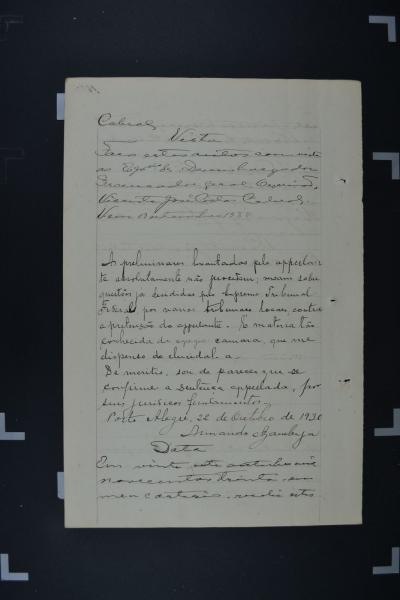 Cabral,
Vista
Faço estes autos com vista
ao Exmo. Sr. Desembargador
Procurador Geral
Vicente José Costa Cabral,
As preliminares levantadas pelo appellan-
te absolutamente não procedem, versam sobre
questões já decididas pelo Supremo Tribunal
Federal e por varios tribunaes locaes, contra
a pretenção do appellante. E' materia tão
conhecida da egregia camara, que me
dispenso de elucidal-a.
De meritis, sou de parecer que se
confirme a sentença appellada, por
seus juridicos fundamentos.
Porto Alegre, 22 de Outubro de 1930
Armando Azambuja
Data
Em vinte sete outubro mil
novecentos trinta, em
meu cartorio, recebi estes